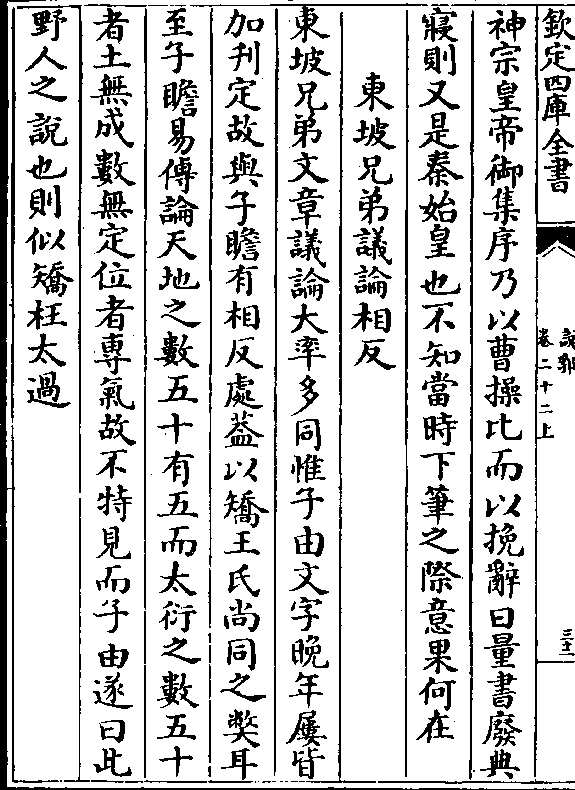 欽定四庫全書
說郛
卷二十二上
三十二
神宗皇帝御集序乃以曹操比而以挽辭曰量書廢典
寢則又是秦始皇也不知當時下筆之際意果何在
東坡兄弟議論相反
東坡兄弟文章議論大率多同惟子由文字晚年屢皆
加刋定故與子瞻有相反處葢以矯王氏尚同之獘耳
至子瞻易傳論天地之數五十有五而太衍之數五十
者土無成數無定位者專氣故不特見而子由遂曰此
野人之說也則似矯枉太過